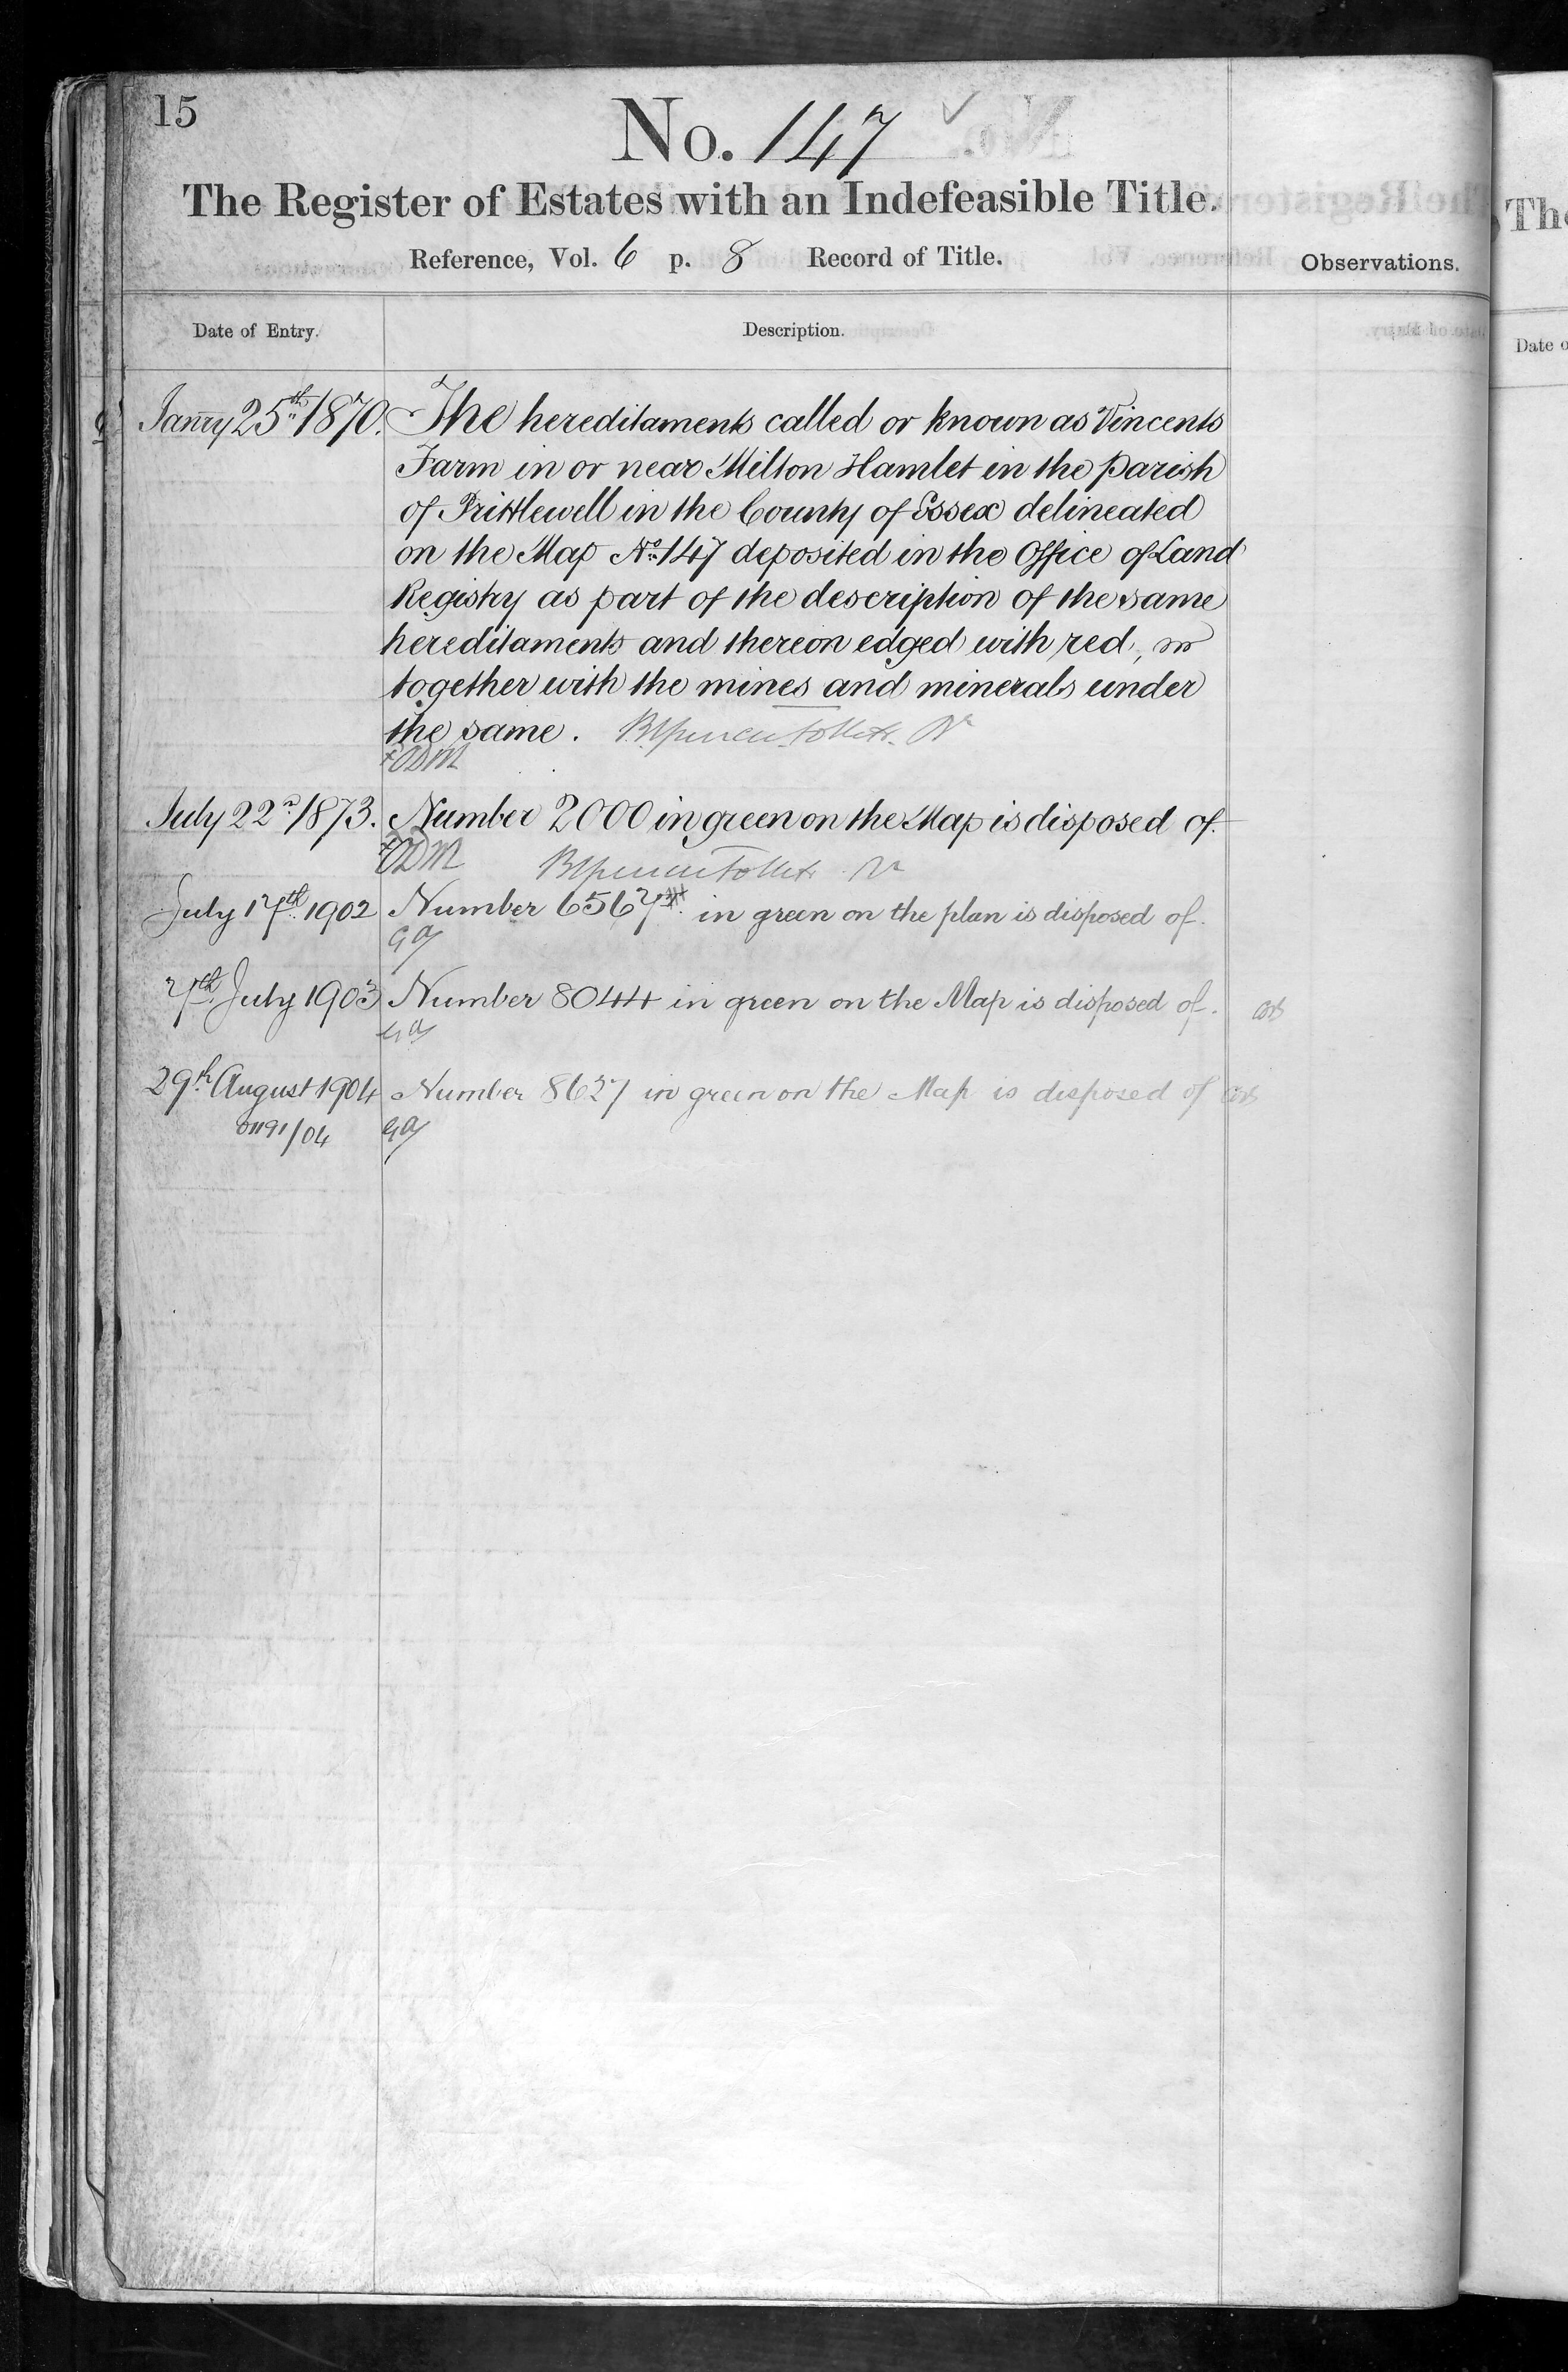 15
No. 147
The Register of Estates with an Indefeasible Title.
Reference, Vol. 6 p. 8 Record of Title.
Observations.
Date of Entry.
Description.
Janry 25th 1870. The hereditaments called or known as Vincents
Farm in or near Milton Hamlet in the parish
of Prittlewell in the County of Essex delineated
on the Map No. 147 deposited in the Office of Land
Registry as part of the description of the same
hereditaments and thereon edged with red,
together with the mines and minerals under
the same.
July 22d 1873. Number 2000 in green on the Map is disposed of.
July 17th 1902 Number 6567 in green on the plan is disposed of.
7th July 1903 Number 8044 in green on the Map is disposed of.
29th August 1904 Number 8627 in green on the Map is disposed of
/04
The
Date o